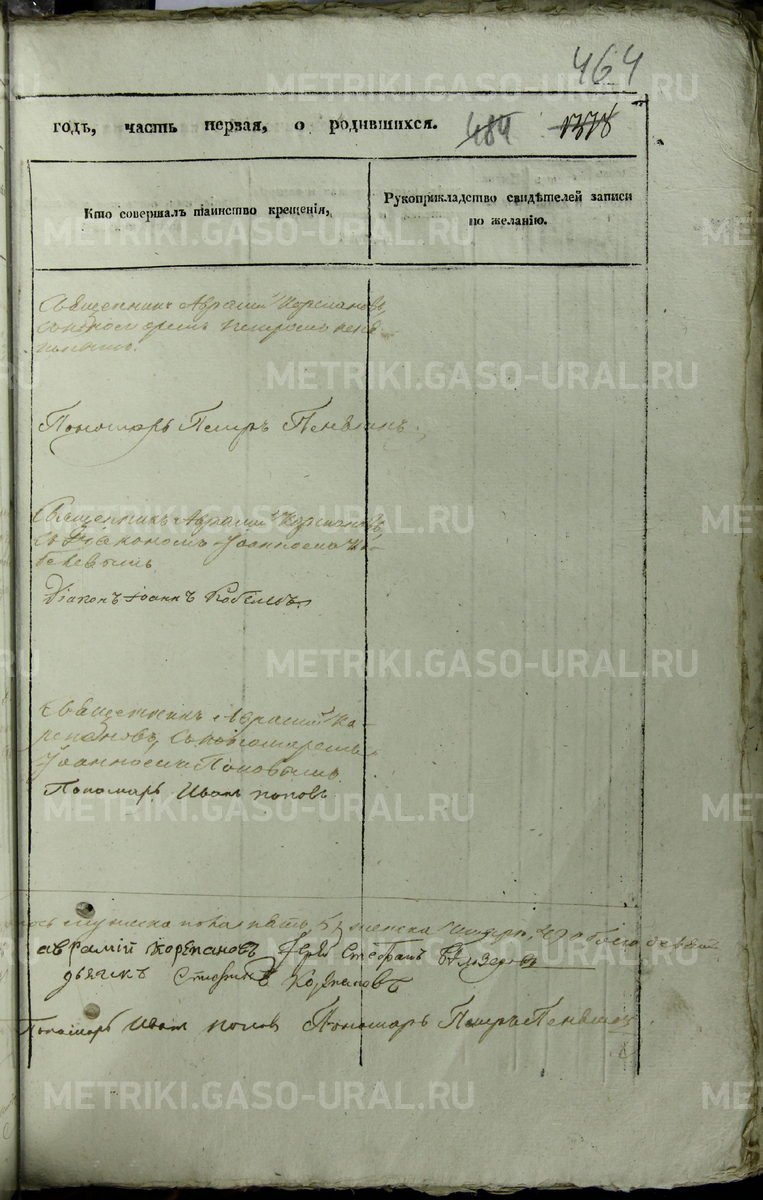 464
годъ, часть первая, о родившихся. 484 1378
Кто совершалъ таинство крещенія,
Рукоприкладство свидѣтелей записи
по желанію.
Священникъ Авраамій Корепановъ,
съ пономаремъ Петромъ
Пономарь Петръ Пенягинъ.
Священникъ Авраамій Корепановъ
съ Діакономъ Іоанномъ Ко-
белевымъ
Діаконъ Іоаннъ Кобелевъ
Священникъ Авраамій Ко-
репановъ, съ пономаремъ
Іоанномъ Поповымъ.
Пономарь Иванъ попов
мужска пола пять 5, женска четыре, 4, обоего девять
аврамій корепановъ Іерей Стефанъ
дьячекъ Корепановъ
Пономарь Иван попов Пономарь Петръ Пенягинъ.
METRIKI.GASO-URAL.RU